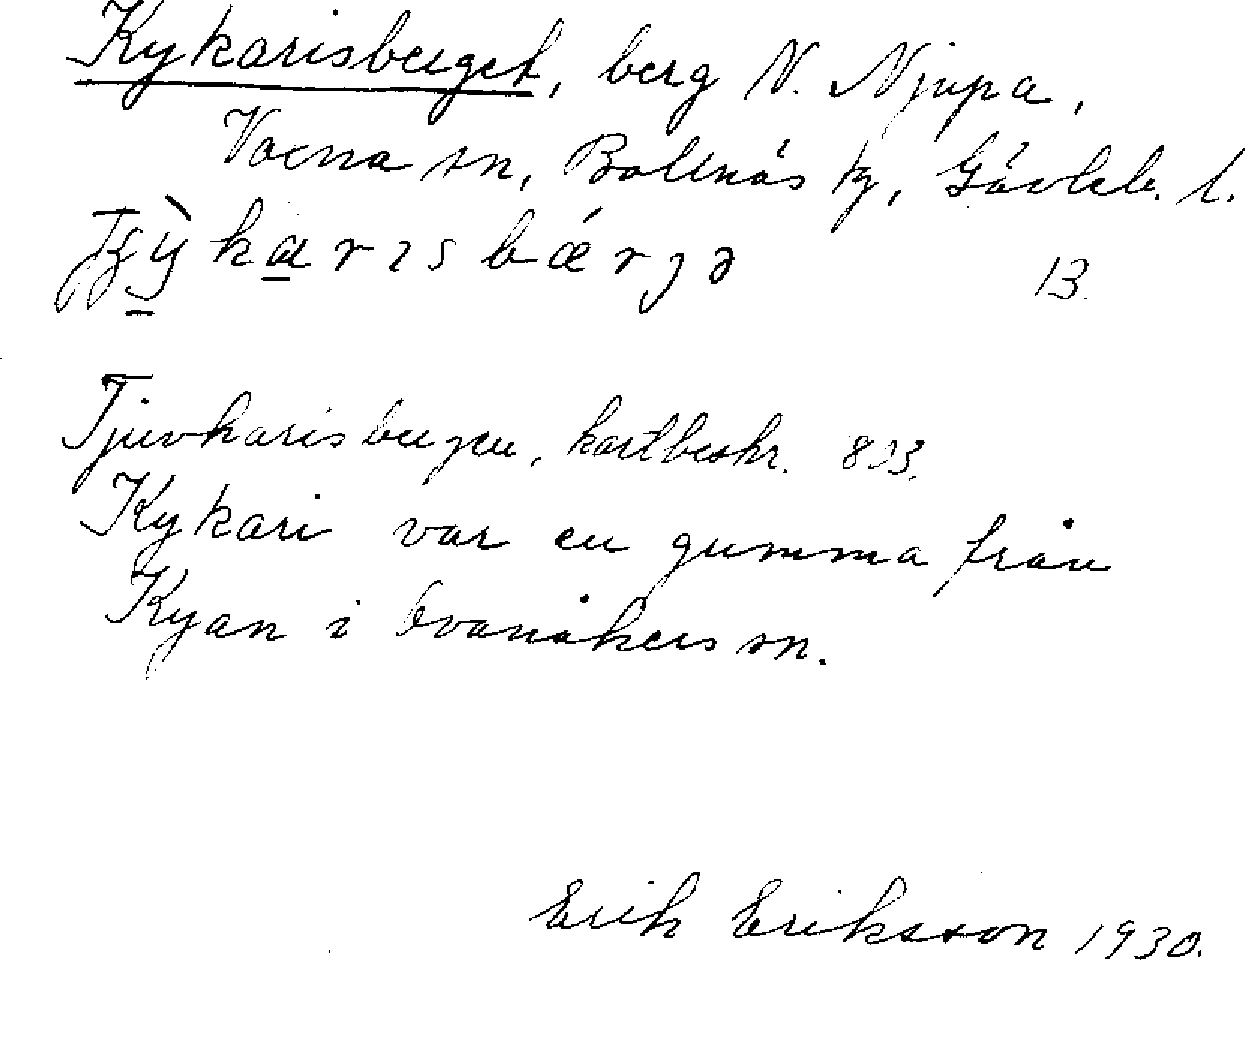 Kykarisberget, berg N. Njupa,
Voxna sn, Bollnäs tg, Gävleb. l.
karısbǽrjə 13.
Tjuvkarisbergen, kartbeskr. 893.
Kykari var en gumma från
Kyan i Ovanåkers sn.
Erik Eriksson 1930.